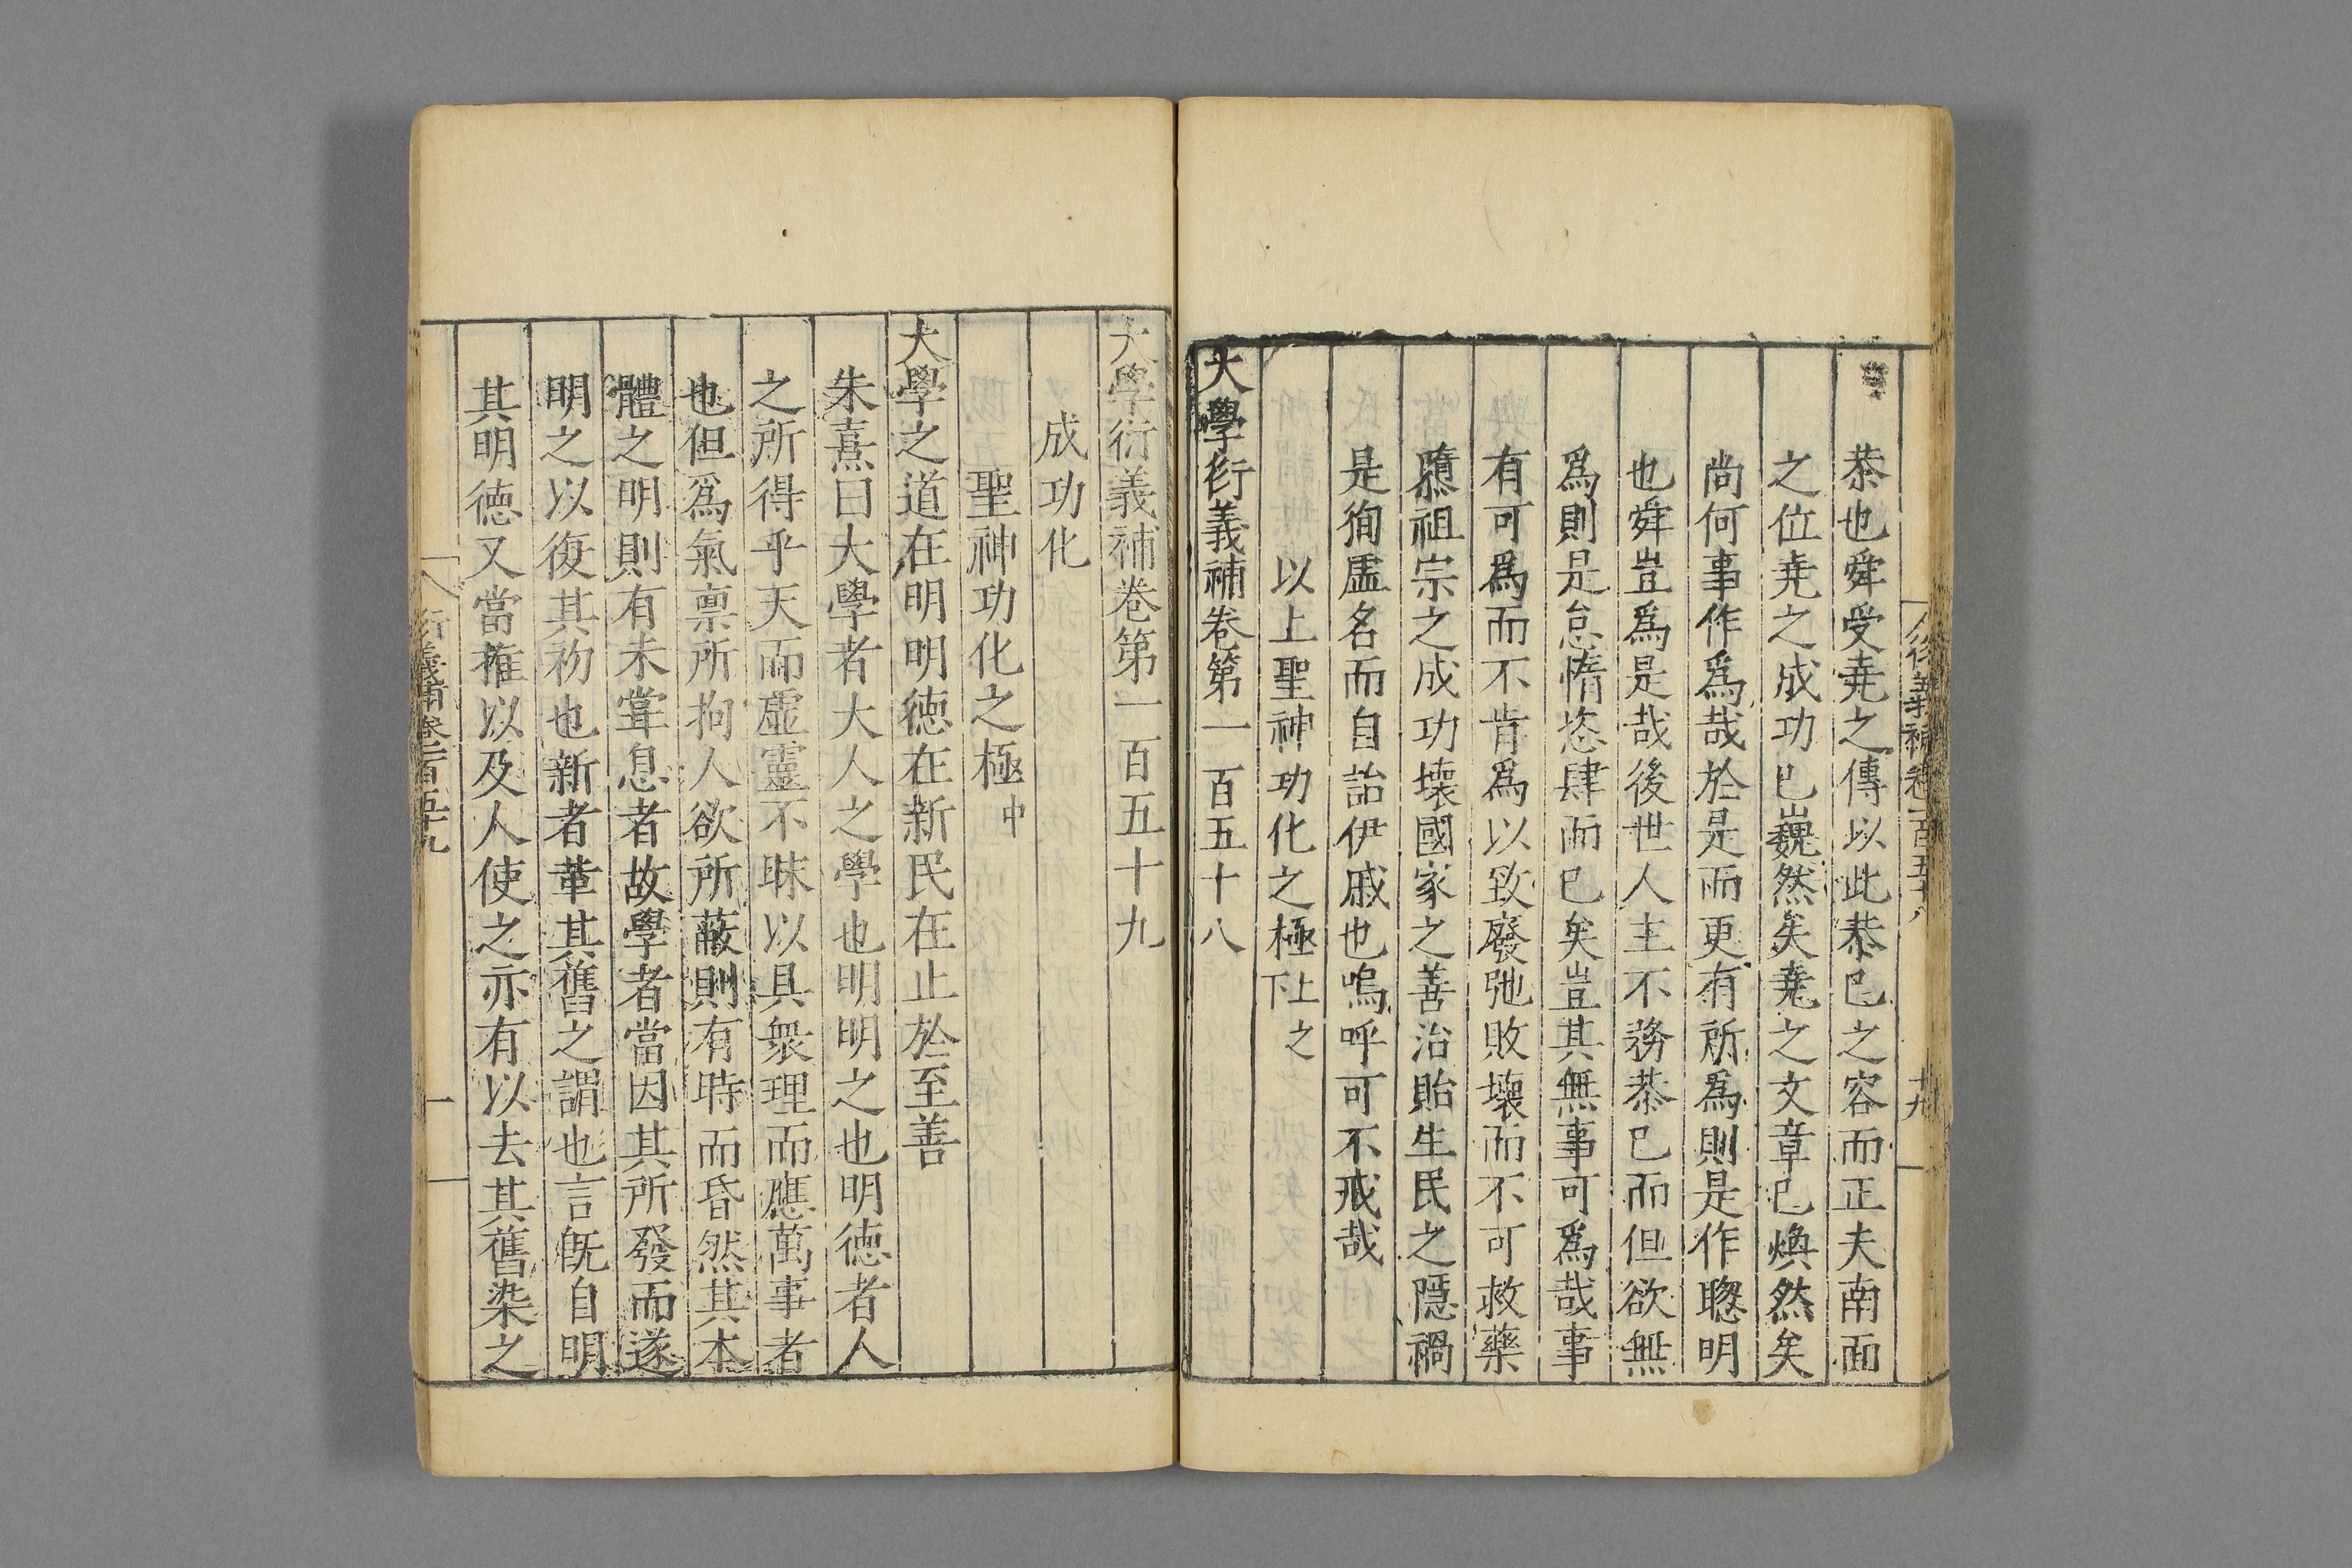 恭也舜受堯之傳以此恭己之容而正夫南面
之位堯之成功已巍然矣堯之文章已煥然矣
尚何事作爲哉於是而更有所爲則是作聰明
也舜豈爲是哉後世人主不務恭己而但欲無
爲則是怠惰恣肆而已矣豈其無事可爲哉事
有可爲而不肯爲以致廢弛敗壞而不可救藥
隳祖宗之成功壞國家之善治貽生民之隱禍
是徇虛名而自詒伊戚也嗚呼可不戒哉
以上聖神功化之極上之下
大學衍義補卷第一百五十八
大學衍義補卷第一百五十九
成功化
聖神功化之極中
大學之道在明明德在新民在止於至善
朱熹曰大學者大人之學也明明之也明德者人
之所得乎天而虛靈不昧以具衆理而應萬事者
也但爲氣禀所拘人欲所蔽則有時而昏然其本
體之明則有未甞息者故學者當因其所發而遂
明之以復其初也新者革其舊之謂也言旣自明
其明德又當推以及人使之亦有以去其舊染之
衍義補卷一百五十九
一